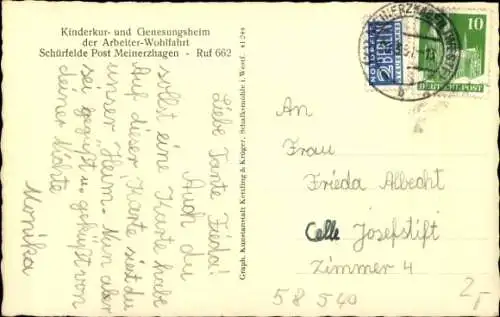 Kinderkur- und Genesungsheim
der Arbeiter-Wohlfahrt
Schürfelde Post Meinerzhagen - Ruf 662
Liebe Tante Frieda!
Auch du
sollst eine Karte haben
Auf dieser Karte siehst du
unser "Heim". Nun aber
sei gegrüßt u. geküßt von
deiner Nichte
Monika
Graph. Kunstanstalt Kettling & Krüger, Schalksmühle i. Westf.
NOTOPFER
2 BERLIN
10
DEUTSCHE POST
An
Frau
Frieda Albrecht
Celle Josefstift
Zimmer 4
58 540
2,-